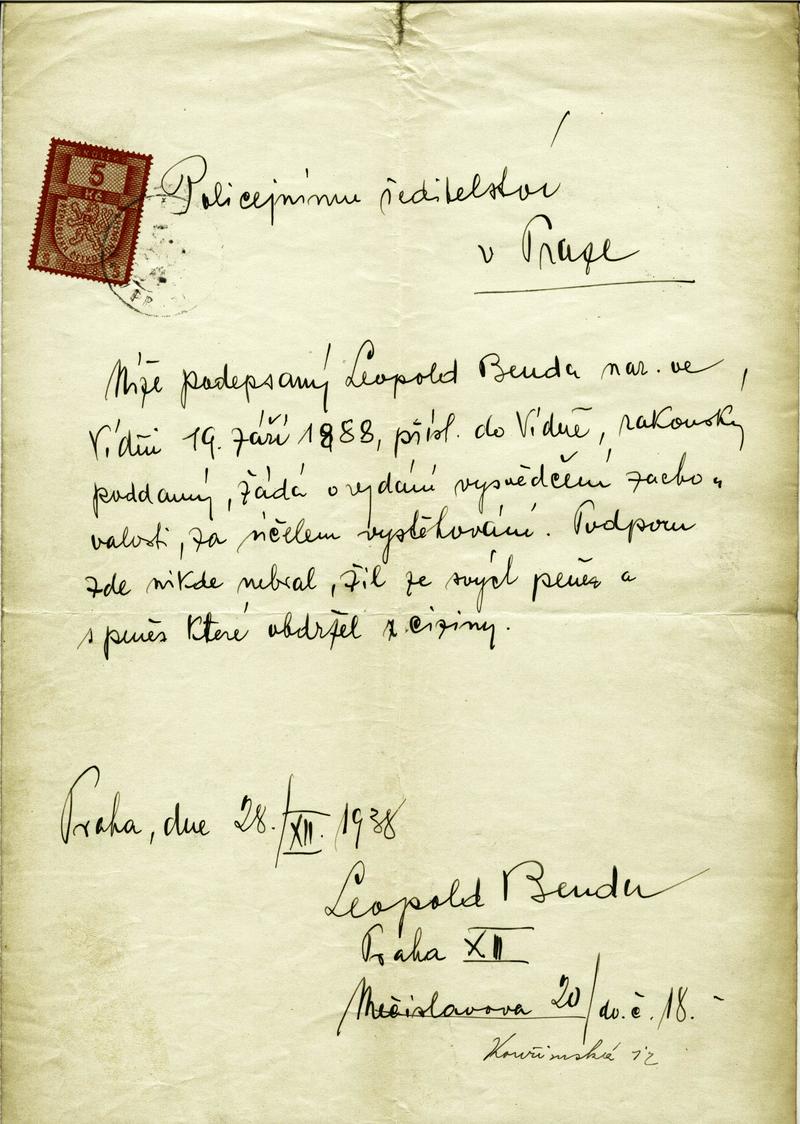 5
Kč
Policejnímu ředitelství
v Praze
Níže podepsaný Leopold Benda nar. ve
Vídni 19. září 1888, přísl. do Vídně, rakouský
poddaný, žádá o vydání vysvědčení zacho-
valosti, za účelem vystěhování. Podporu
zde nikde nebral, žil ze svých peněz a
s peněs které obdržel z ciziny.
Praha, dne 28./XII. 1938
Leopold Benda
Praha XII
Mečislavova 20/do. č. 18.
Kouřimská 12